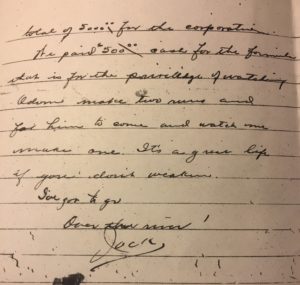 total of 5000 00/xx for the corporation.
He paid $500 00/xx cash for the formula
that is for the priviledge of watching
Adom make two runs and
for him to come and watch me
make one. It's a great life
if you don't weaken.
I've got to go
Over the river!
Jack